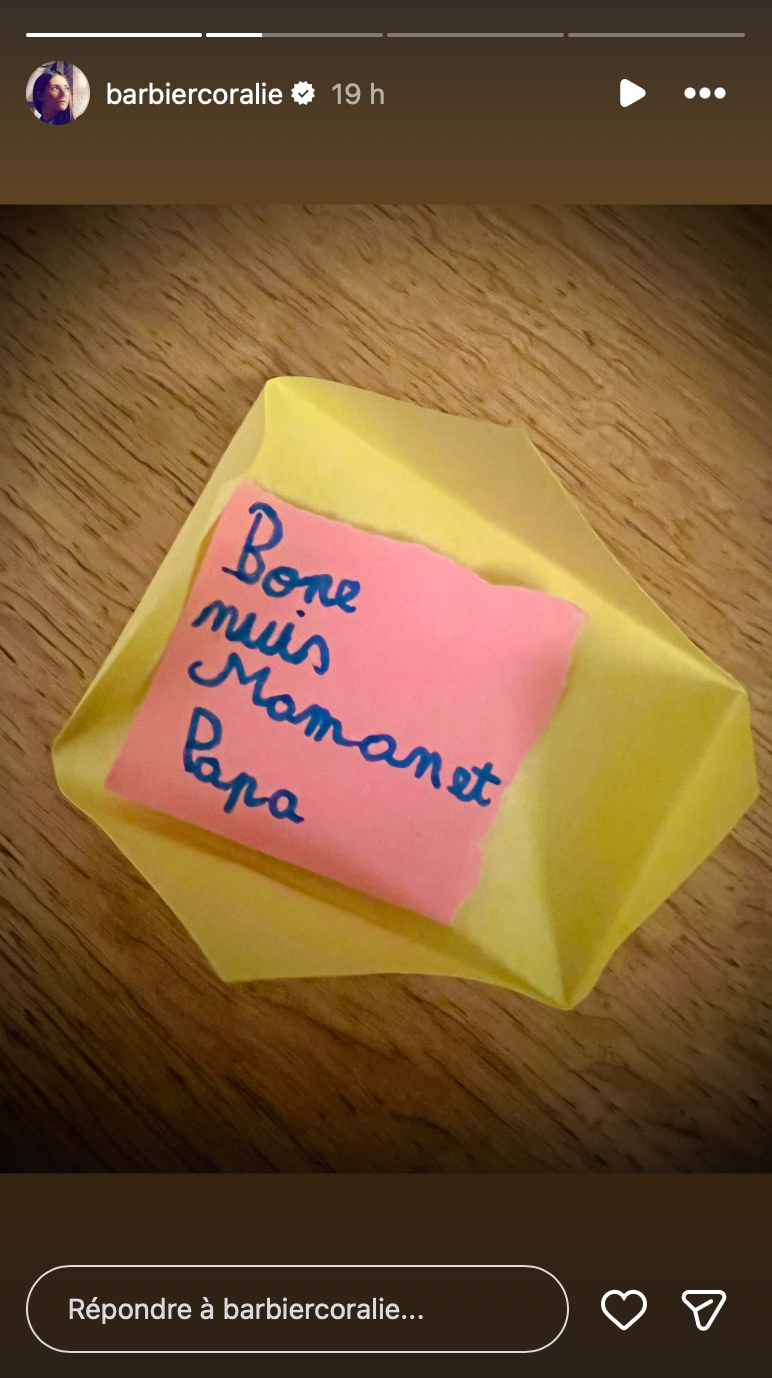 barbiercoralie 19 h
Bone
nuis
Maman et
Papa
Répondre à barbiercoralie...